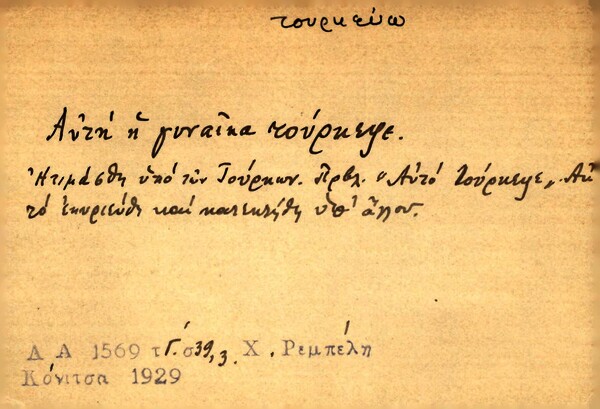 τουρκεύω
Αὐτή ἡ γυναῖκα τούρκεψε.
Ἠτιμάσθη ὑπό τῶν Τούρκων. Πρβλ. "Αὐτό τούρκεψε„. Αὐ
τό ἐκυριεύθη καί κατεκτήθη ὑπ' ἄλλου.
Λ Α 1569 τΓ. σ39,3. Χ. Ρεμπέλη
Κόνιτσα 1929